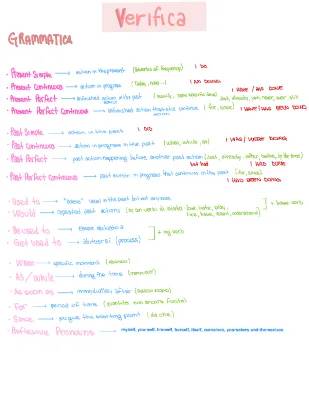 Verifica
GRAMMATICA
• Present Simple → action in the present (adverbs of frequency) I DO
• Present Continuous → action in progress (today, now...) I AM DOING
• Present Perfect → unfinished action in the past I HAVE / HAS DONE
• Present Perfect Continuous → unfinished action that still continue (for, since) I HAVE BEEN DOING
• Past Simple → action in the past I DID
• Past Continuous → action in progress in the past (when, while, as) I WAS / WERE DOING
• Past Perfect → past action happening before another past action (just, already, after, before, by the time) I HAD DONE
• Past Perfect Continuous → past action in progress that continues in the past (for, since) I HAD BEEN DOING
• Used to → "solevo" used in the past but not anymore
• Would → repeated past actions (no con verbi di stato: ] + base verb
• Be used to → essere abituato a
• Get used to → abituarsi (process) ] + ing verb
• When → specific moment
• As / while → during the time (mentre)
• As soon as → immediately after
• For → period of time
• Since → starting point (da che)
• Reflexive Pronouns → myself, yourself, himself, herself, itself, ourselves, yourselves and themselves